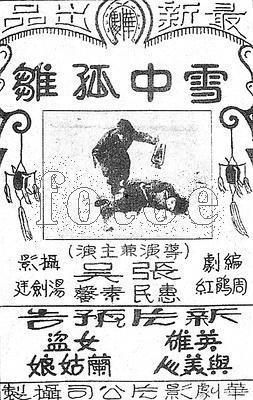 最新出品
雪中孤雛
(導演兼主演)
張惠民
吳素馨
編劇
周鵑紅
攝影
湯劍廷
新片預告
英雄與美人
女盜蘭姑娘
華劇影片公司攝製